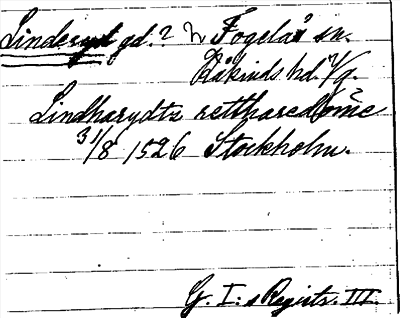 Linderyd gd.? i Fogelås sn.
Kåkinds hd. Vg.
Lindharydtz rettharedöme
31/8 1526 Stockholm.
G. I:s Registr. III.